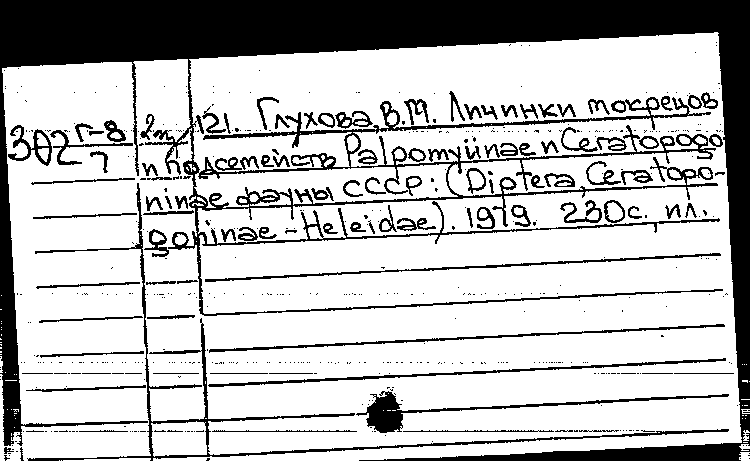 302 Г-8/7 2 т/121. Глухова, В.М. Личинки мокрецов
п подсемейств Palpomyiinae и Ceratopogo
ninae фауны СССР: (Diptera, Ceratopo-
goninae - Heleidae). 1979. 230с., ил.